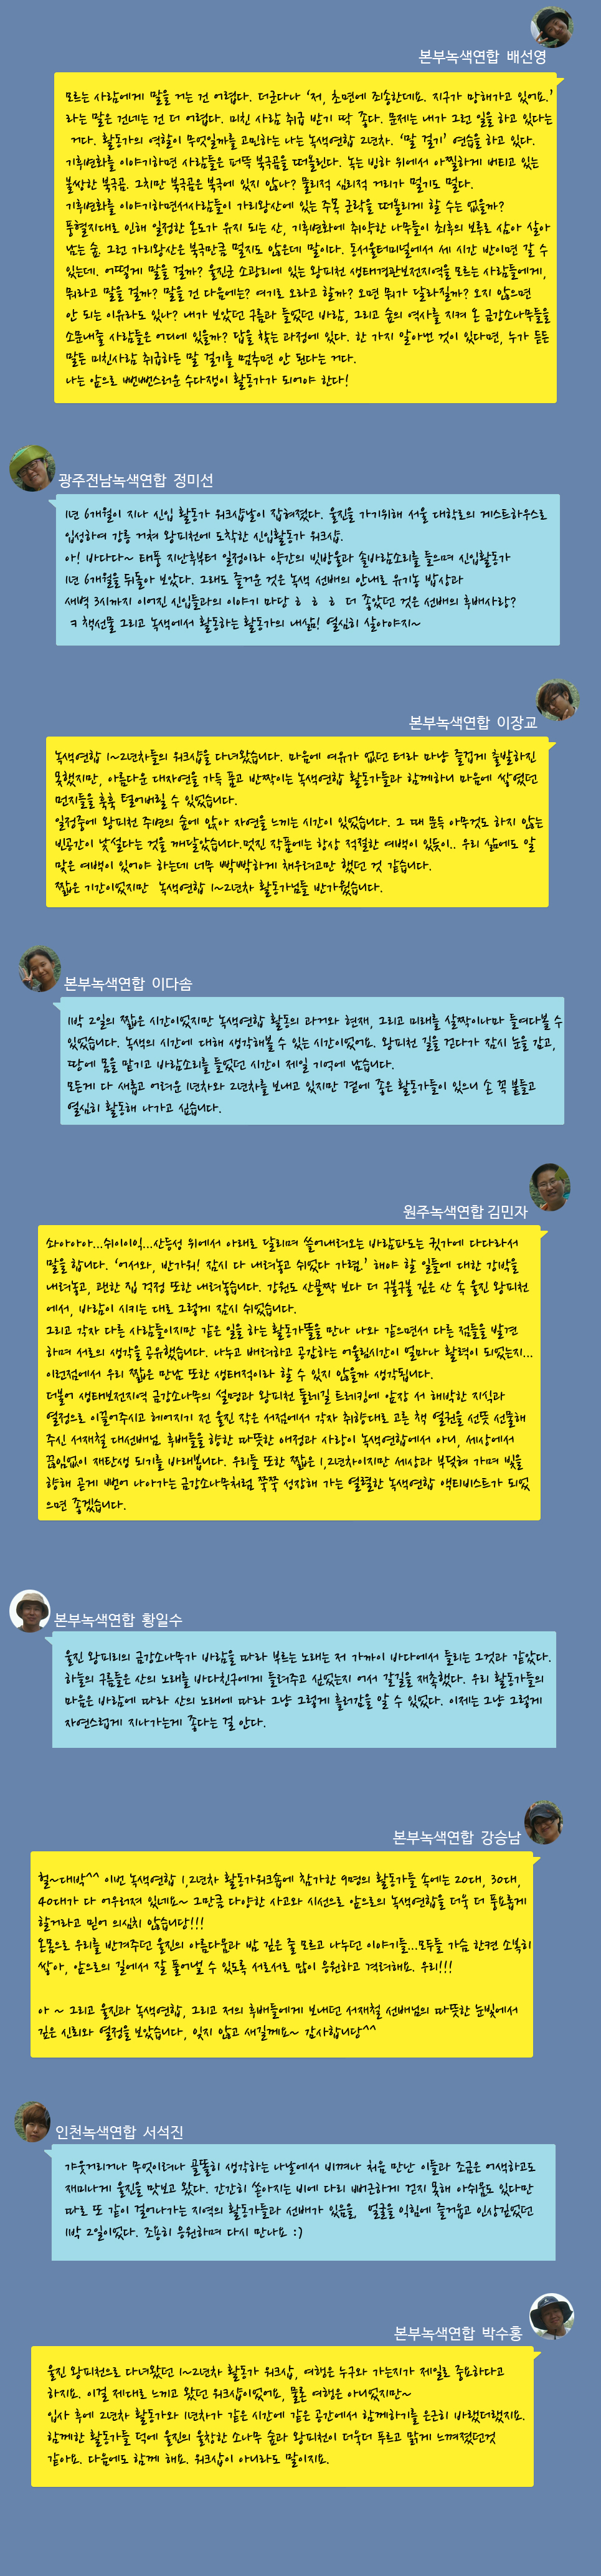 본부녹색연합 배선영
모르는 사람에게 말을 거는 건 어렵다. 더군다나 '저, 초면에 죄송한데요. 지구가 망해가고 있어요.'
라는 말은 건네는 건 더 어렵다. 미친 사람 취급 받기 딱 좋다. 문제는 내가 그런 일을 하고 있다는
거다. 활동가의 역할이 무엇일까를 고민하는 나는 녹색연합 2년차. '말 걸기' 연습을 하고 있다.
기후변화를 이야기하면 사람들은 퍼뜩 북극곰을 떠올린다. 녹는 빙하 위에서 아찔하게 버티고 있는
불쌍한 북극곰. 그치만 북극곰은 북극에 있지 않나? 물리적 심리적 거리가 멀기도 멀다.
기후변화를 이야기하면서사람들이 가리왕산에 있는 주목 군락을 떠올리게 할 수는 없을까?
풍혈지대로 인해 일정한 온도가 유지 되는 산, 기후변화에 취약한 나무들이 최후의 보루로 삼아 살아
남는 숲. 그런 가리왕산은 북극만큼 멀지도 않은데 말이다. 동서울터미널에서 세 시간 반이면 갈 수
있는데. 어떻게 말을 걸까? 울진군 소광리에 있는 왕피천 생태경관보전지역을 모르는 사람들에게,
뭐라고 말을 걸까? 말을 건 다음에는? 여기로 오라고 할까? 오면 뭐가 달라질까? 오지 않으면
안 되는 이유라도 있나? 내가 보았던 구름과 들었던 바람, 그리고 숲의 역사를 지켜 온 금강소나무들을
소문내줄 사람들은 어디에 있을까? 답을 찾는 과정에 있다. 한 가지 알아낸 것이 있다면, 누가 듣든
말든 미친사람 취급하든 말 걸기를 멈추면 안 된다는 거다.
나는 앞으로 뻔뻔스러운 수다쟁이 활동가가 되어야 한다!
광주전남녹색연합 정미선
1년 6개월이 지나 신입 활동가 워크샵날이 잡혀졌다. 울진을 가기위해 서울 대학로의 게스트하우스로
입성하여 강릉 거쳐 왕피천에 도착한 신입활동가 워크샵.
아! 바다다~ 태풍 지난후부터 일정이라 약간의 빗방울과 솔바람소리를 들으며 신입활동가
1년 6개월을 뒤돌아 보았다. 그래도 즐거운 것은 녹색 선배의 안내로 유기농 밥상과
새벽 3시까지 이어진 신입들과의 이야기 마당 ㅎ ㅎ ㅎ 더 좋았던 것은 선배의 후배사랑?
ㅋ 책선물 그리고 녹색에서 활동하는 활동가의 내삶! 열심히 살아야지~
본부녹색연합 이장교
녹색연합 1~2년차들의 워크샵을 다녀왔습니다. 마음에 여유가 없던 터라 마냥 즐겁게 출발하진
못했지만, 아름다운 대자연을 가득 품고 반짝이는 녹색연합 활동가들과 함께하니 마음에 쌓였던
먼지들을 훅훅 털어버릴 수 있었습니다.
일정중에 왕피천 주변의 숲에 앉아 자연을 느끼는 시간이 있었습니다. 그 때 문득 아무것도 하지 않는
빈공간이 낯설다는 것을 깨달았습니다.멋진 작품에는 항상 적절한 여백이 있듯이.. 우리 삶에도 알
맞은 여백이 있어야 하는데 너무 빡빡하게 채우려고만 했던 것 같습니다.
짧은 기간이었지만 녹색연합 1~2년차 활동가님들 반가웠습니다.
본부녹색연합 이다솜
1박 2일의 짧은 시간이었지만 녹색연합 활동의 과거와 현재, 그리고 미래를 살짝이나마 들여다볼 수
있었습니다. 녹색의 시간에 대해 생각해볼 수 있는 시간이었어요. 왕피천 길을 걷다가 잠시 눈을 감고,
땅에 몸을 맡기고 바람소리를 들었던 시간이 제일 기억에 남습니다.
모든게 다 새롭고 어려운 1년차와 2년차를 보내고 있지만 곁에 좋은 활동가들이 있으니 손 꼭 붙들고
열심히 활동해 나가고 싶습니다.
원주녹색연합 김민자
솨아아아...쉬이이익...산등성 위에서 아래로 달리며 쓸어내려오는 바람파도는 귓가에 다다라서
말을 합니다. '어서와, 반가워! 잠시 다 내려놓고 쉬었다 가렴.' 해야 할 일들에 대한 강박을
내려놓고, 괜한 집 걱정 또한 내려놓습니다. 강원도 산골짝 보다 더 구불구불 깊은 산 속 울진 왕피천
에서, 바람이 시키는 대로 그렇게 잠시 쉬었습니다.
그리고 각자 다른 사람들이지만 같은 일을 하는 활동가들을 만나 나와 같으면서 다른 점들을 발견
하며 서로의 생각을 공유했습니다. 나누고 배려하고 공감하는 어울림시간이 얼마나 활력이 되었는지...
이런점에서 우리 짧은 만남 또한 생태적이라 할 수 있지 않을까 생각됩니다.
더불어 생태보전지역 금강소나무의 설명과 왕피천 둘레길 트레킹에 앞장 서 해박한 지식과
열정으로 이끌어주시고 헤어지기 전 울진 작은 서점에서 각자 취향대로 고른 책 열권을 선뜻 선물해
주신 서재철 대선배님. 후배들을 향한 따뜻한 애정과 사랑이 녹색연합에서 아니, 세상에서
끊임없이 재탄생 되기를 바래봅니다. 우리들 또한 짧은 1,2년차이지만 세상과 부딪혀 가며 빛을
향해 곧게 뻗어 나아가는 금강소나무처럼 쭉쭉 성장해 가는 열렬한 녹색연합 액티비스트가 되었
으면 좋겠습니다.
본부녹색연합 황일수
울진 왕피리의 금강소나무가 바람을 따라 부르는 노래는 저 가까이 바다에서 들리는 그것과 같았다.
하늘의 구름들은 산의 노래를 바다친구에게 들려주고 싶었는지 어서 갈길을 재촉했다. 우리 활동가들의
마음은 바람에 따라 산의 노래에 따라 그냥 그렇게 흘러감을 알 수 있었다. 이제는 그냥 그렇게
자연스럽게 지나가는게 좋다는 걸 안다.
본부녹색연합 강승남
헐~대박^^ 이번 녹색연합 1,2년차 활동가워크숍에 참가한 9명의 활동가들 속에는 20대, 30대,
40대가 다 어우러져 있네요~ 그만큼 다양한 사고와 시선으로 앞으로의 녹색연합을 더욱 더 풍요롭게
할거라고 믿어 의심치 않습니당!!!
온몸으로 우리를 반겨주던 울진의 아름다움과 밤 깊은 줄 모르고 나누던 이야기들...모두들 가슴 한켠 소복히
쌓아, 앞으로의 길에서 잘 풀어낼 수 있도록 서로서로 맘이 응원하고 격려해요. 우리!!!
아 ~ 그리고 울진과 녹색연합, 그리고 저의 후배들에게 보내던 서재철 선배님의 따뜻한 눈빛에서
깊은 신뢰와 열정을 보았습니다, 잊지 않고 새길께요~ 감사합니당^^
인천녹색연합 서석진
갸웃거리거나 무엇이려나 골똘히 생각하는 나날에서 비껴나 처음 만난 이들과 조금은 어색하고도
재미나게 울진을 맛보고 왔다. 간간히 쏟아지는 비에 다리 뻐근하게 걷지 못해 아쉬움도 있다만
따로 또 같이 걸어나가는 지역의 활동가들과 선배가 있음을, 얼굴을 익힘에 즐겁고 인상깊었던
1박 2일이었다. 조용히 응원하며 다시 만나요 :)
본부녹색연합 박수홍
울진 왕피천으로 다녀왔던 1~2년차 활동가 워크샵, 여행은 누구와 가는지가 제일로 중요하다고
하지요. 이걸 제대로 느끼고 왔던 워크샵이었어요, 물론 여행은 아니었지만~
입사 후에 2년차 활동가와 1년차가 같은 시간에 같은 공간에서 함께하기를 은근히 바랬더랬지요.
함께한 활동가들 덕에 울진의 울창한 소나무 숲과 왕피천이 더욱더 푸르고 맑게 느껴졌던것
같아요. 다음에도 함께 해요. 워크샵이 아니라도 말이지요.